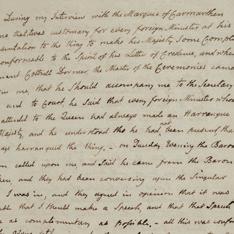 During my Interview with the Marquis of Carmarthen
me that it was customary for every foreign Minister at his
presentation to the King, to make his Majesty some Compliments
conformable to the Spirit of his Letter of Credence, and when
Cottrell Dormer, the Master of the Ceremonies came
me, that he should accompany me to the Secretary
and to Court, he said that every foreign Minister whom
attended to the Queen had always made an Harrangue
Majesty, and he understood tho he had not been present that
always harrangued the King. - on Tuesday Evening the Baron
called upon me and said he came from the Baron
and they had been conversing upon the Singular
I was in, and they agreed in opinion that it was
that I should make a Speech, and that that Speech
as complimentary as possible. - all this was conform